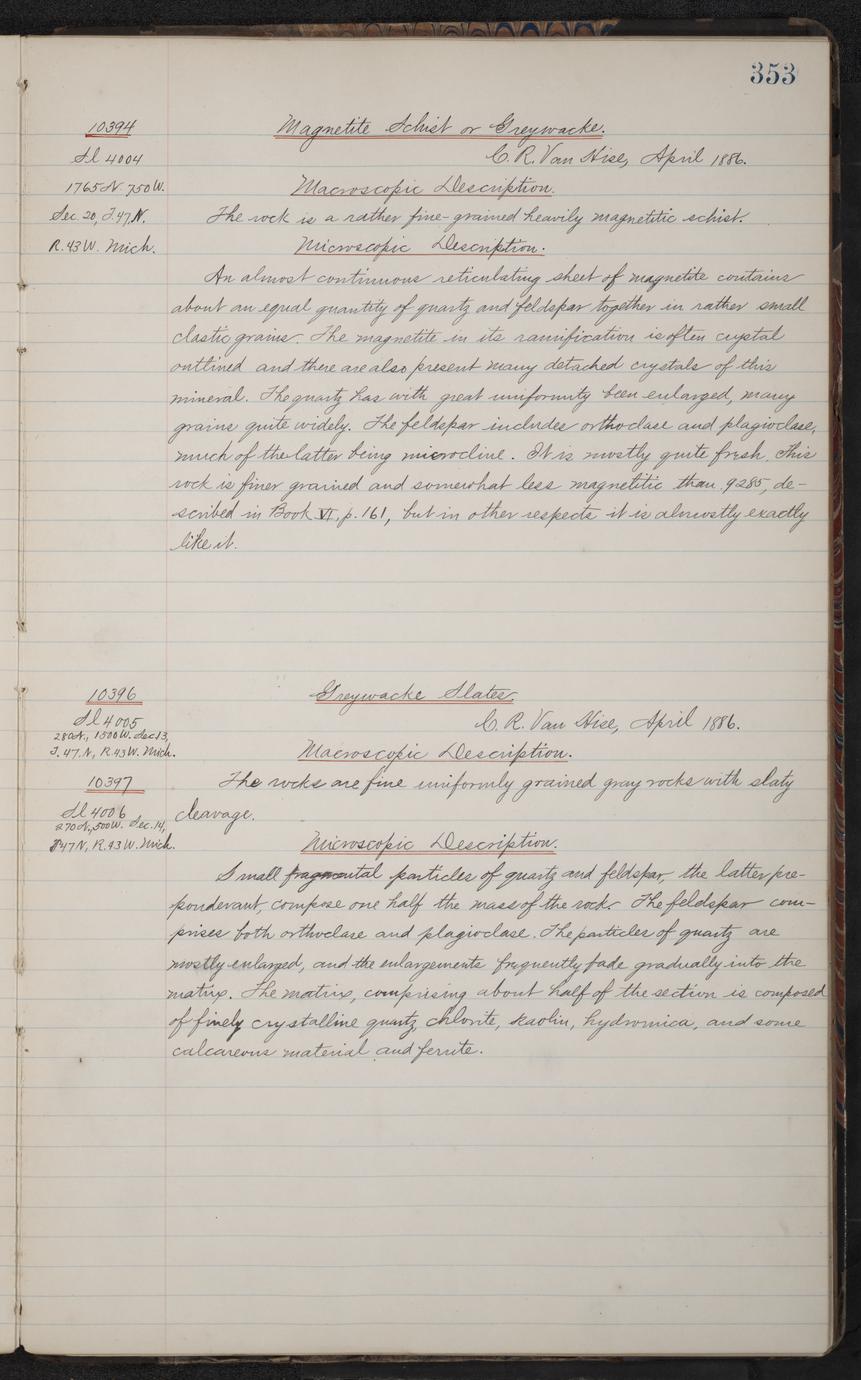 353
10394
Magnetite Schist or Greywacke.
Sl 4004
C. R. Van Hise, April 1886.
1765 N. 750 W.
Macroscopic Description.
Sec. 20, T. 47. N.
The rock is a rather fine-grained heavily magnetitic schist.
R. 43 W. Mich.
Microscopic Description.
An almost continuous reticulating sheet of magnetite contains
about an equal quantity of quartz and feldspar together in rather small
clastic grains. The magnetite in its ramification is often crystal
outlined and there are also present many detached crystals of this
mineral. The quartz has with great uniformity been enlarged, many
grains quite widely. The feldspar includes orthoclase and plagioclase,
much of the latter being microcline. It is mostly quite fresh. This
rock is finer grained and somewhat less magnetitic than 9285, de-
scribed in Book VI, p. 161, but in other respects it is almostly exactly
like it.
10396
Greywacke Slates.
Sl 4005
C. R. Van Hise, April 1886.
280 N., 1500 W. Sec 13,
T. 47. N., R. 43 W. Mich.
Macroscopic Description.
10397
The rocks are fine uniformly grained gray rocks with slaty
Sl 4006
cleavage.
270 N., 500 W. Sec. 14,
T 47 N., R. 43 W. Mich.
Microscopic Description.
Small fragmental particles of quartz and feldspar, the latter pre-
ponderant, compose one half the mass of the rock. The feldspar com-
prises both orthoclase and plagioclase. The particles of quartz are
mostly enlarged, and the enlargements frequently fade gradually into the
matrix. The matrix, comprising about half of the section is composed
of finely crystalline quartz, chlorite, kaolin, hydromica, and some
calcareous material and ferrite.